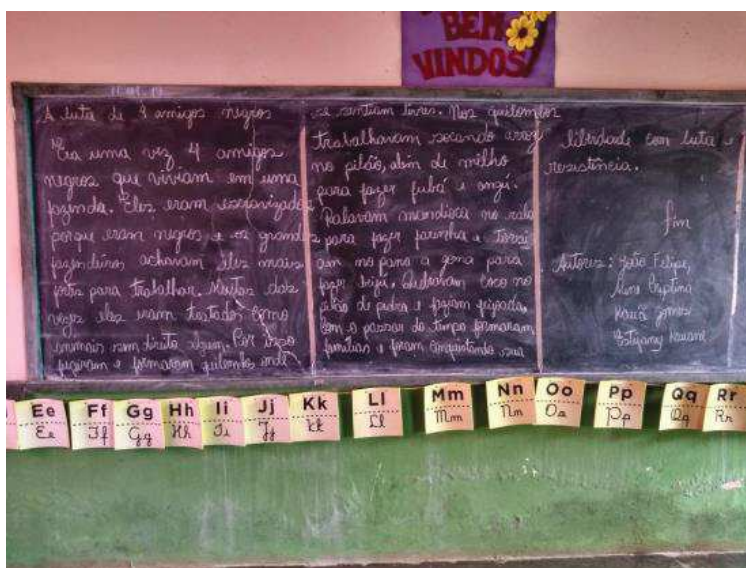 BEM
VINDOS!
A luta de 4 amigos negros
Era uma vez 4 amigos
negros que viviam em uma
fazenda. Eles eram escravizados
porque eram negros e os grandes
fazendeiros achavam eles mais
fortes para trabalhar. Muitas das
vezes eles eram tratados como
animais sem direito algum. Por isso
fugiram e formaram quilombos onde
se sentiam livres. Nos quilombos
trabalhavam socando arroz
no pilão, além de milho
para fazer fubá e angú.
Ralavam mandioca no ralo
para fazer farinha e
no pano a goma para
fazer biju. Quebravam coco no
pilão de pedra e faziam feijoada.
Com o passar do tempo formaram
famílias e foram conquistando sua
liberdade com luta e
resistência.
fim
Autores: João Felipe,
Kauã Gomes
Kauane
Ee Ff Gg Hh Ii Jj Kk Ll Mm Nn Oo Pp Qq Rr
Ee Ff Gg Hh Ii Jj Kk Ll Mm Nn Oo Pp Qq Rr